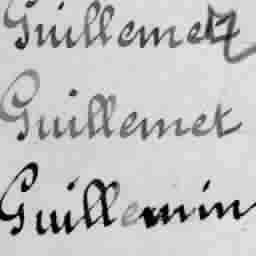 Guillemet
Guillemet
Guillemin